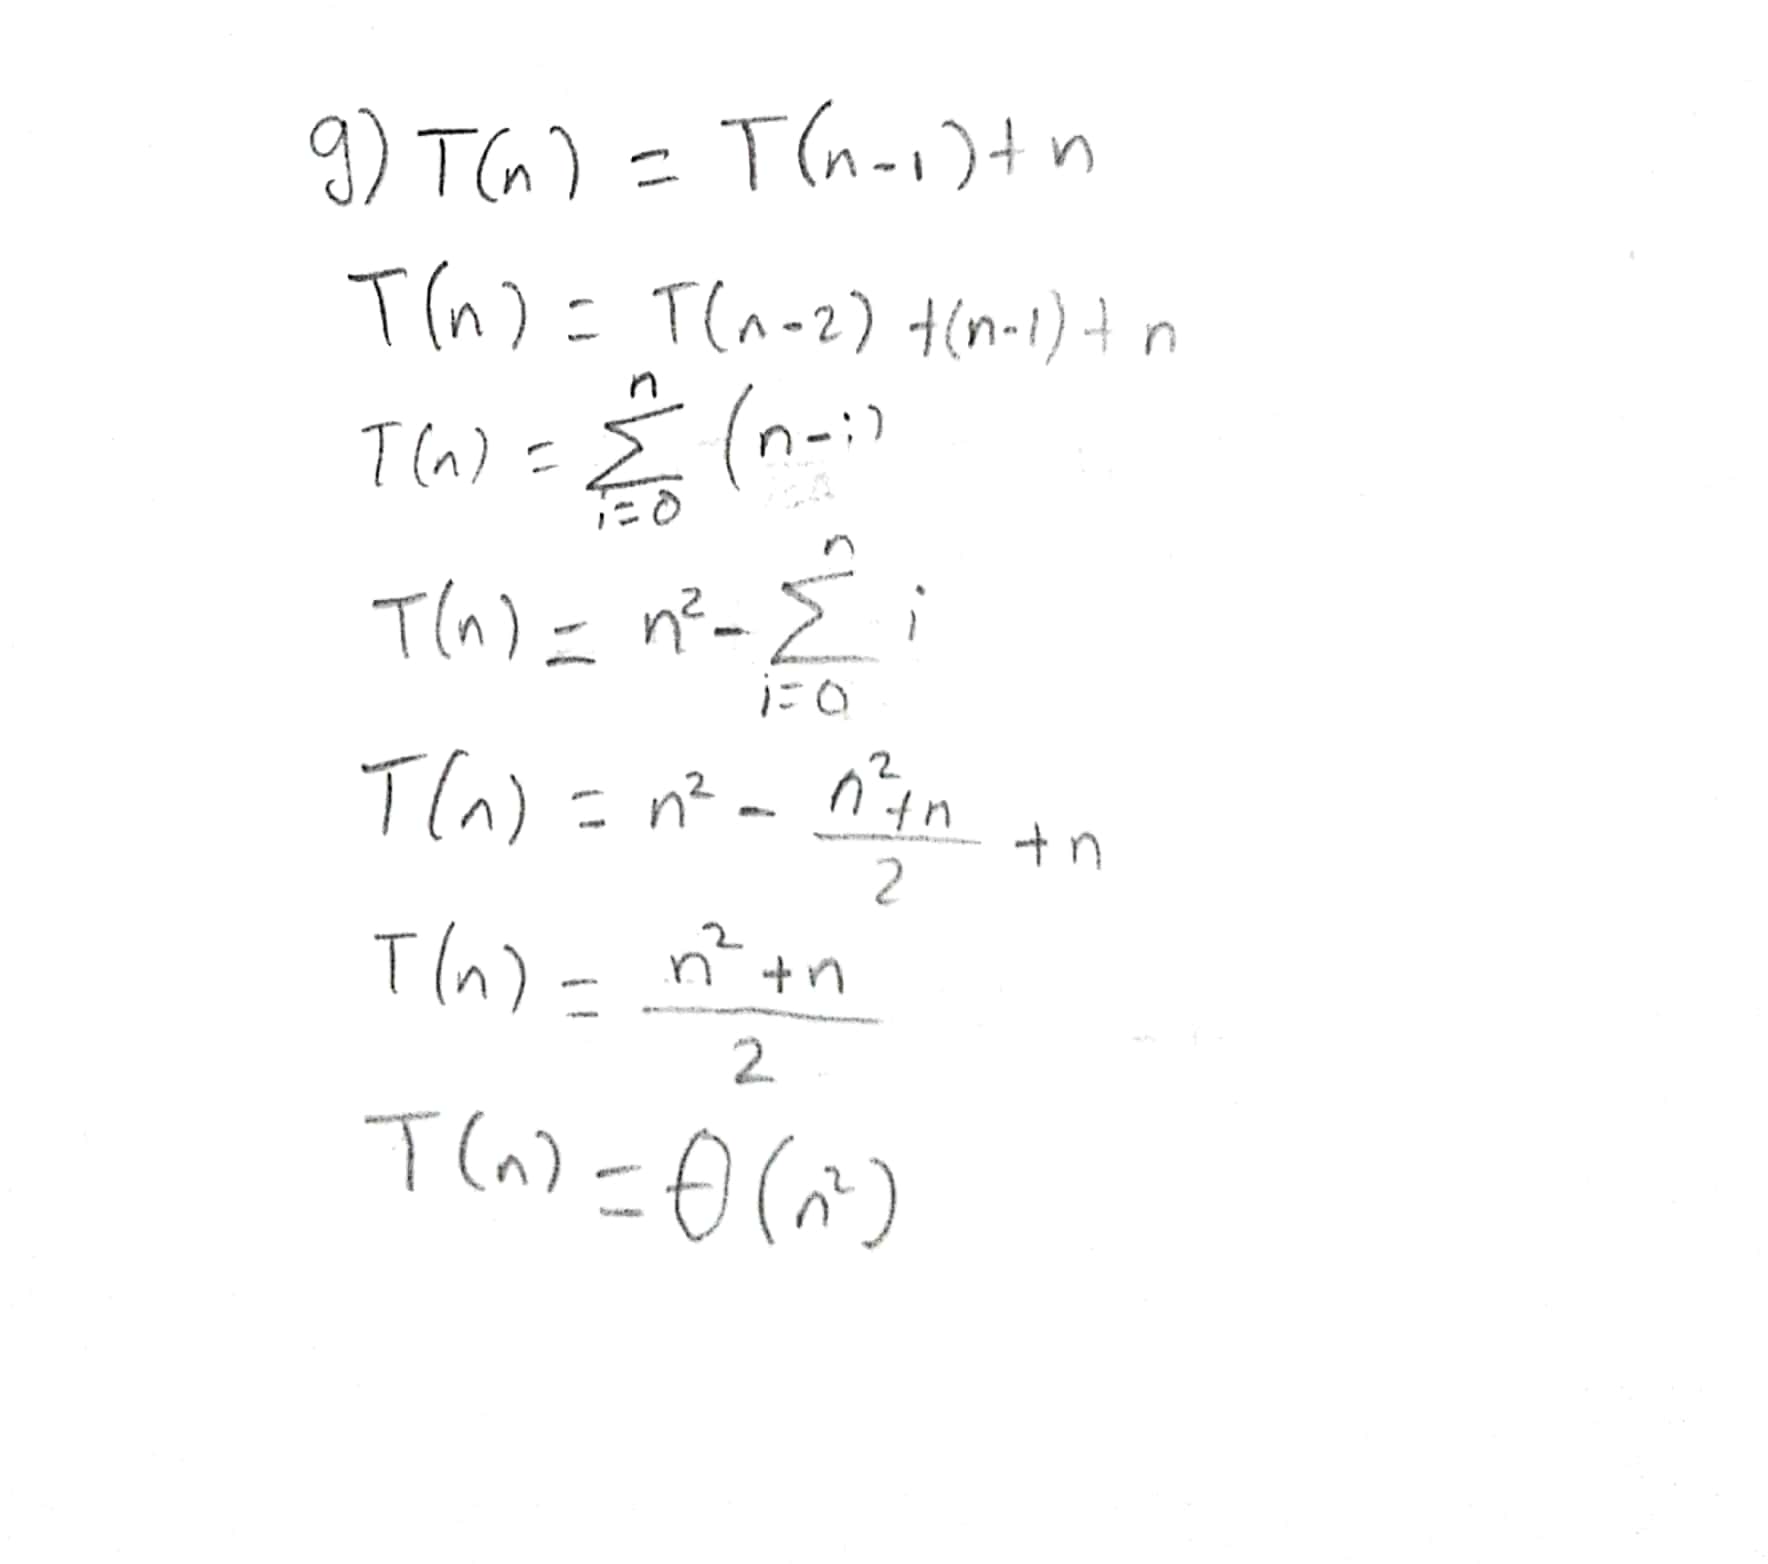 g) T(n) = T(n-1)+n
T(n) = T(n-2) +(n-1)+n
T(n) = \sum_{i=0}^{n} (n-i)
T(n) = n² - \sum_{i=0}^{n} i
T(n) = n² - \frac{n²+n}{2} + n
T(n) = \frac{n²+n}{2}
T(n) = θ(n²)